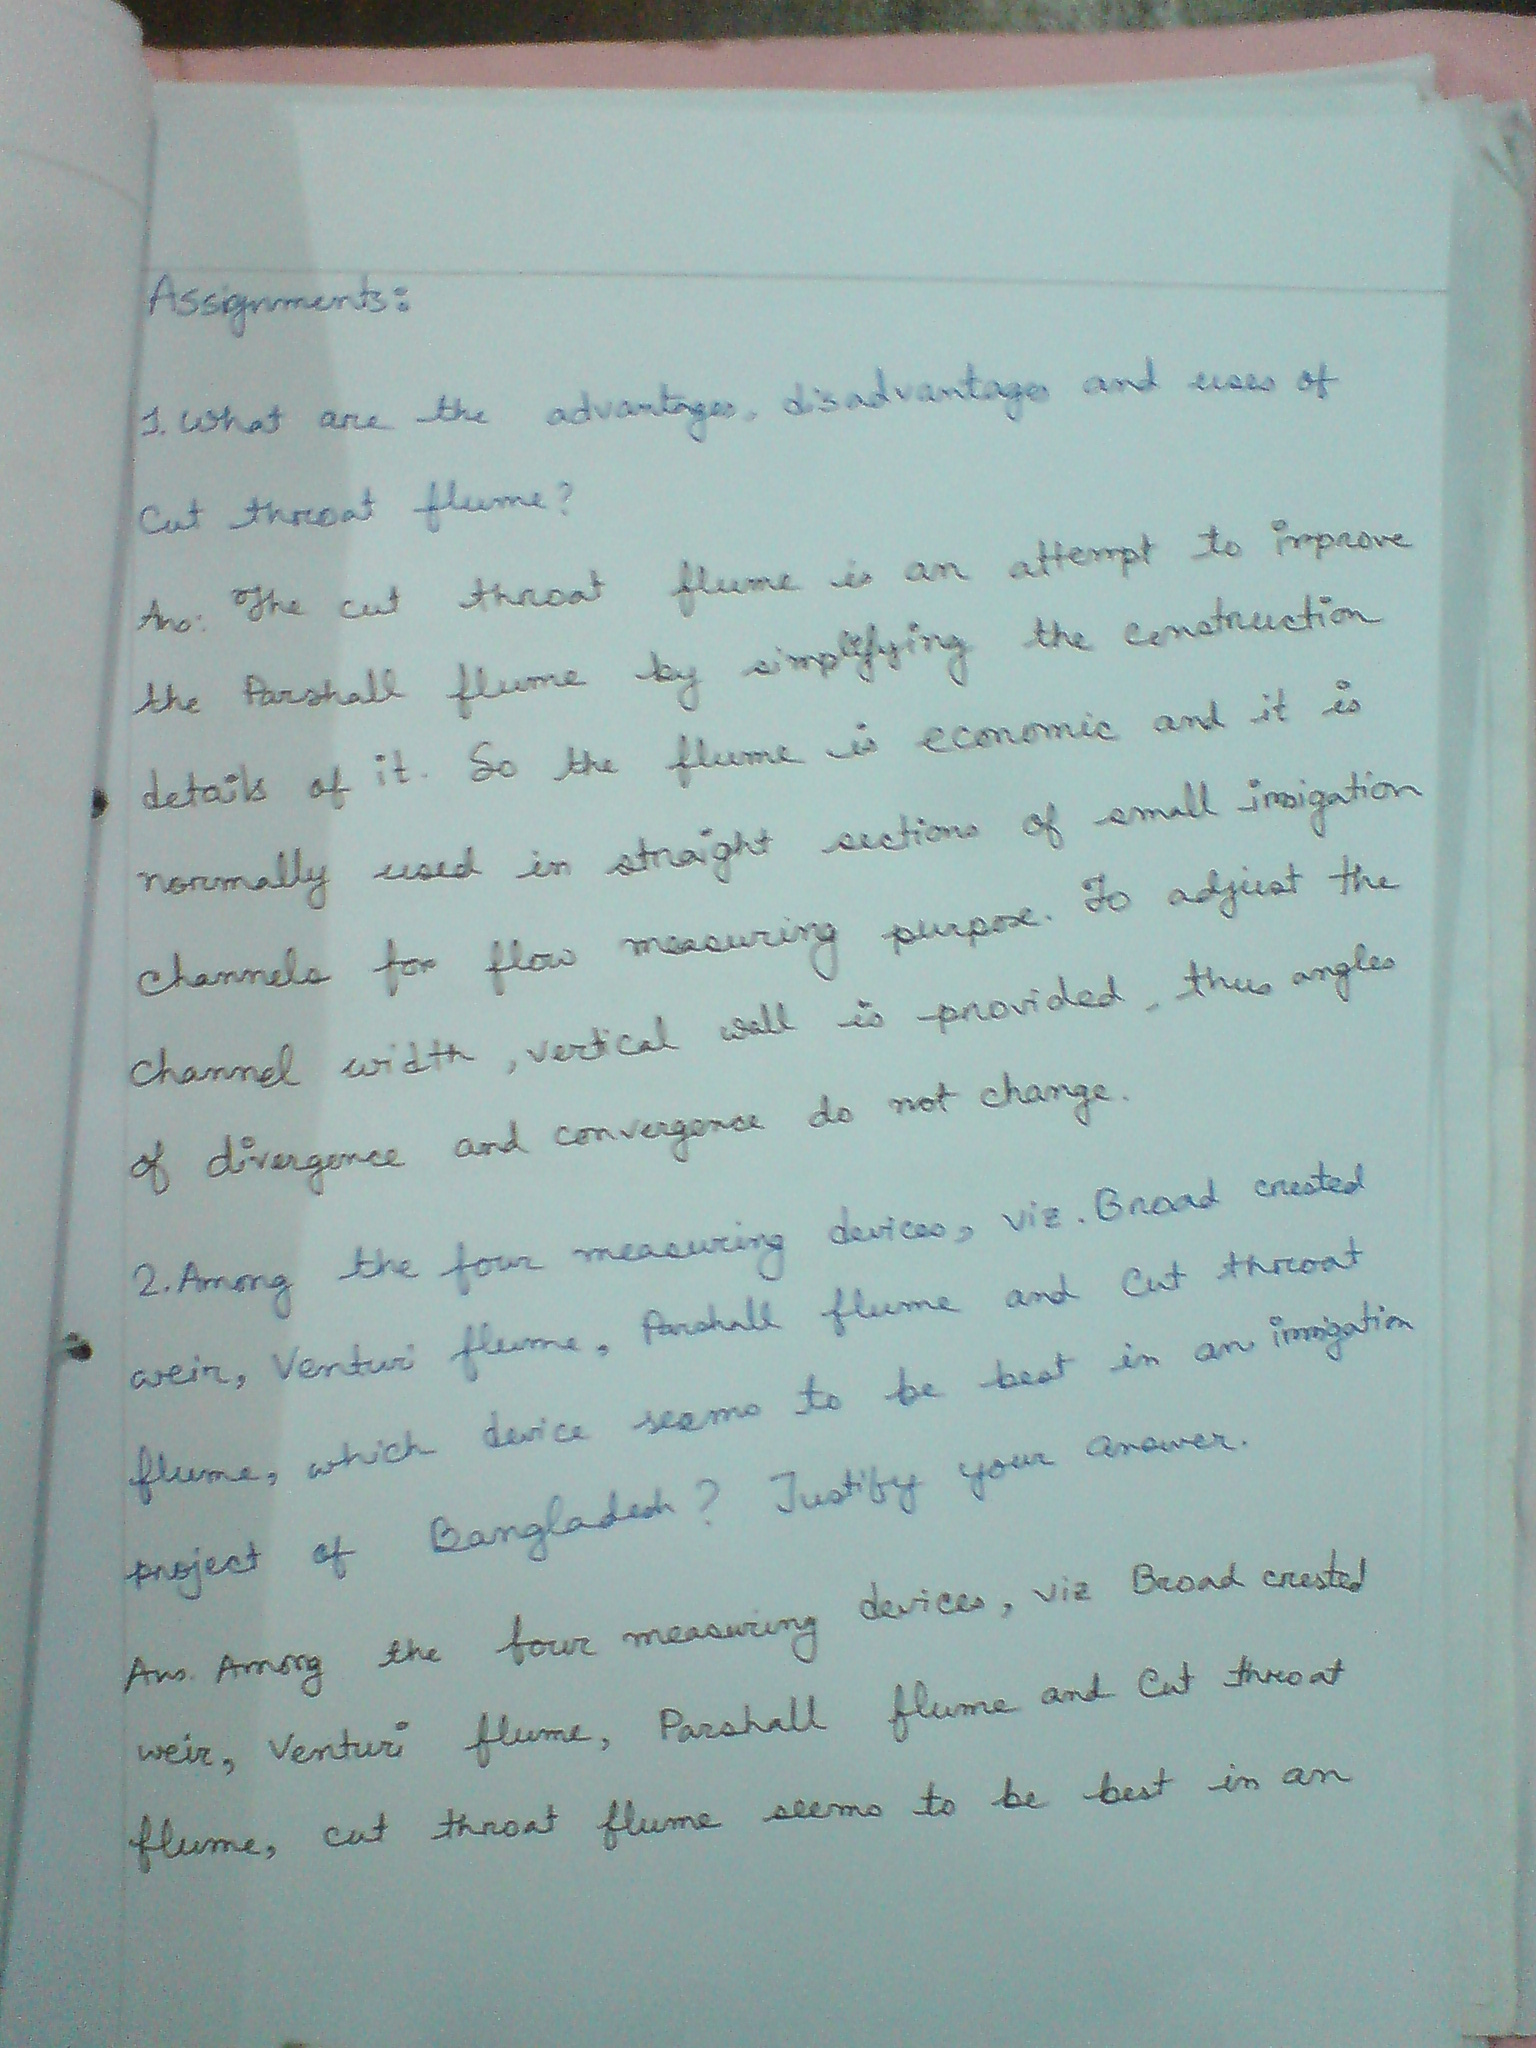 Assignments:
1. What are the advantages, disadvantages and uses of
Cut throat flume?
Ans: The cut throat flume is an attempt to improve
the Parshall flume by simplifying the construction
details of it. So the flume is economic and it is
normally used in straight sections of small irrigation
channels for flow measuring purpose. To adjust the
channel width, vertical wall is provided, thus angles
of divergence and convergence do not change.
2. Among the four measuring devices, viz. Broad crested
weir, Venturi flume, Parshall flume and Cut throat
flume, which device seems to be best in an irrigation
project of Bangladesh? Justify your answer.
Ans. Among the four measuring devices, viz Broad crested
weir, Venturi flume, Parshall flume and Cut throat
flume, cut throat flume seems to be best in an